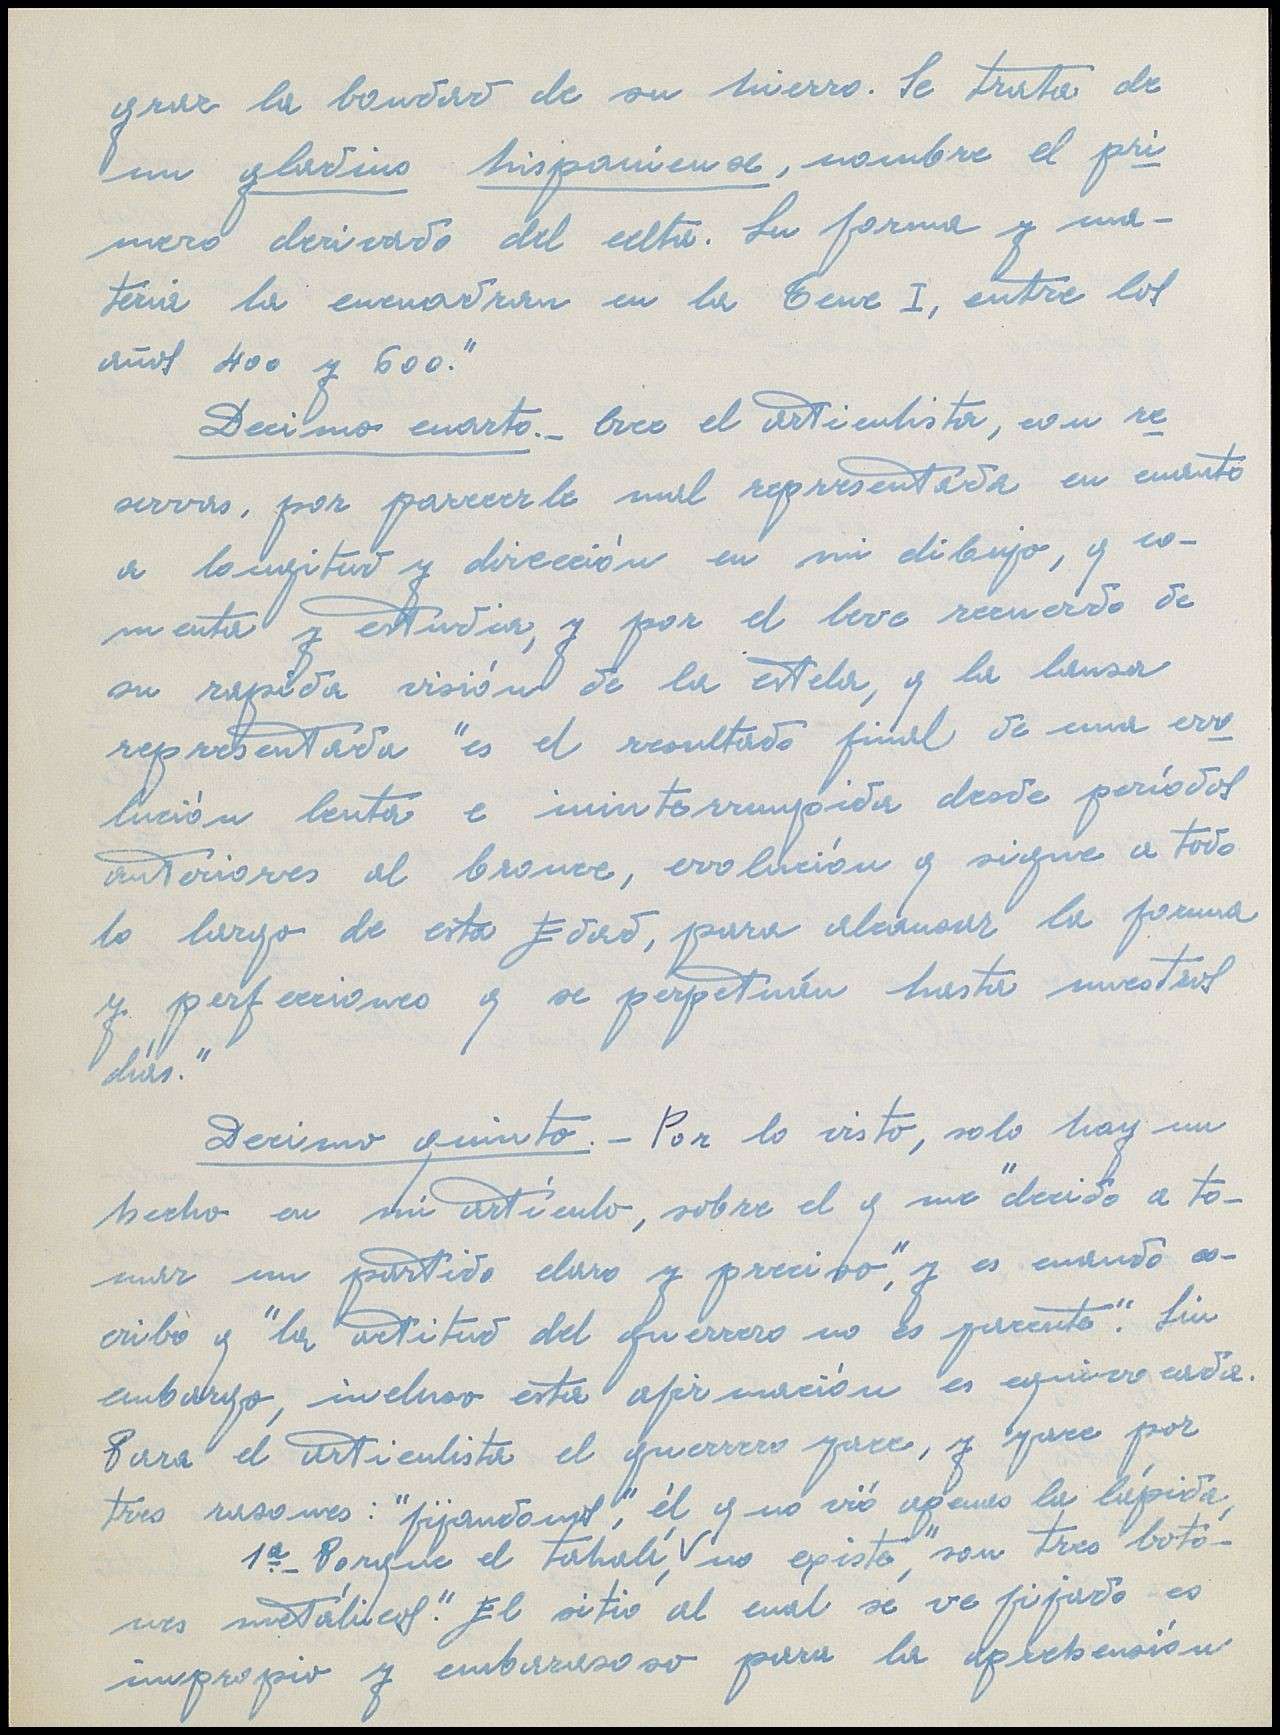 grar la bondad de su hierro. Se trata de
un gladius hispaniense, nombre el pri
mero derivado del celta. Su forma y ma-
teria la encuadran en la Tene I, entre los
años 400 y 600."
Decimo cuarto.- Cree el articulista, con re
servas, por parecerle mal representada en cuanto
a longitud y dirección en mi dibujo, q co-
menta y estudia, y por el leve recuerdo de
su rapida visión de la estela, q la lansa
representada "es el resultado final de una evo
lución lenta e ininterrumpida desde períodos
anteriores al bronce, evolución q sigue a todo
lo largo de esta Edad, para alcansar la forma
y perfecciones q se perpetuán hasta nuestros
días."
Decimo quinto.- Por lo visto, solo hay un
hecho en mi artículo, sobre el q me "decido a to-
mar un partido claro y preciso", y es cuando es-
cribo q "la actitud del guerrero no es yacente". Sin
embargo, incluso esta afirmación es equivocada.
Para el articulista el guerrero yace, y yace por
tres rasones: "fijandonos", él q no vió apenas la lápida,
1ª- Porque el tahalí, no existe, "son tres boto-
nes metálicos." El sitio al cual se ve fijado es
impropio y embarasoso para la aprehensión